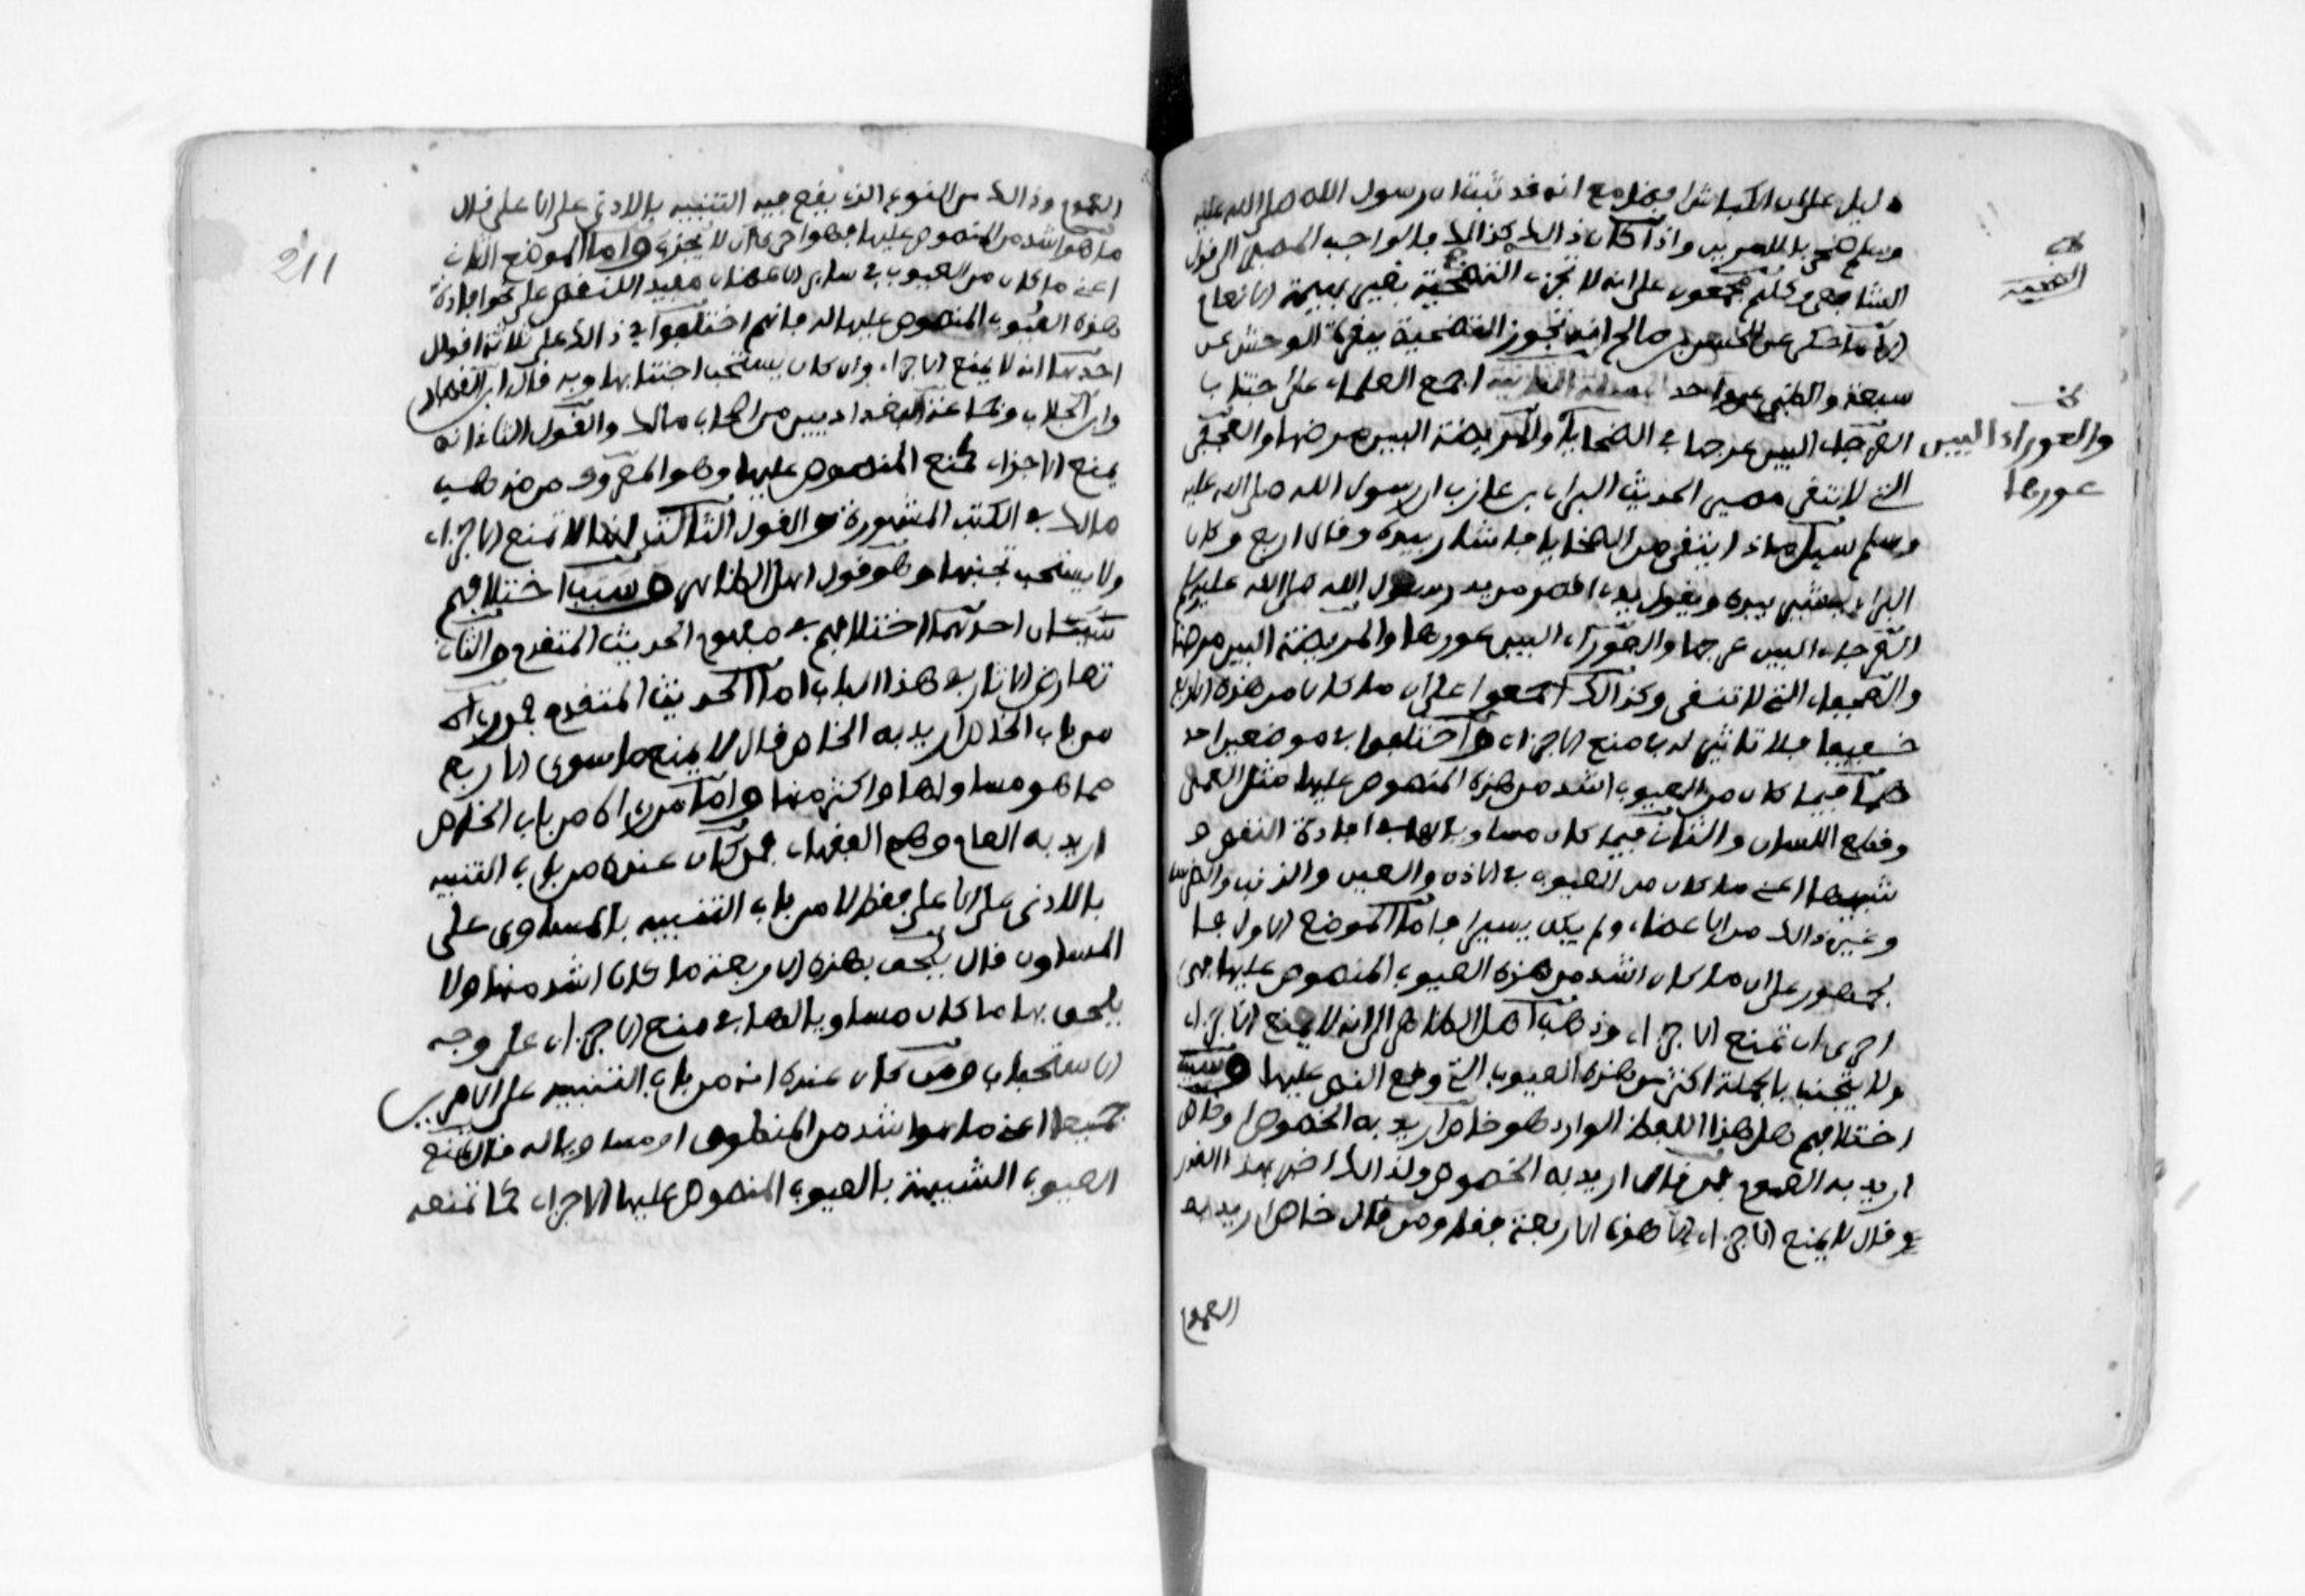 دليل على ان الكباش افضل مع انه قد ثبت ان رسول الله صلى الله عليه
وسلم ضحى بالامرين واذا كان ذالك كذالك فالواجب المصير الى قول
الشافعي وكلهم مجمعون على انه لا تجزي التضحية بغير بهيمة الانعام
الا ما حكي عن الحسن بن صالح انه تجوز التضحية ببقرة الوحش عن
سبعة والظبي عن واحد المسئلة الثانية اجمع العلماء على اجتناب
العرجاء البين عرجها في الضحايا والمريضة البين مرضها والعجفى
والعوراء البين
عورها
التي لا تنقى مصيرا لحديث البراء بن عازب ان رسول الله صلى الله عليه
وسلم سئل ماذا يتقى من الضحايا فاشار بيده وقال اربع وكان
البراء يشير بيده ويقول يدي اقصر من يد رسول الله صلى الله عليه وسلم
العرجاء البين عرجها والعوراء البين عورها والمريضة البين مرضها
والعجفاء التي لا تنقى وكذالك اجمعوا على ان ما كان من هذه الاربع
خفيفا فلا تاثير له في منع الاجزاء واختلفوا في موضعين احد
هما فيما كان من العيوب اشد من هذه المنصوص عليها مثل العمى
وقطع اللسان والثاني فيما كان مساويا لها في افادة النقص و
شبهها اعني ما كان من العيوب في الاذن والعين والذنب والضرس
وغير ذالك من الاعضاء ولم يكن يسيرا فاما الموضع الاول فا
لجمهور على ان ما كان اشد من هذه العيوب المنصوص عليها فهي
احرى ان تمنع الاجزاء وذهب اهل الظاهر الى انه لا يمنع الاجزاء
ولا يتجنب بالجملة اكثر من هذه العيوب التي وقع النص عليها وسبب
اختلافهم هل هذا اللفظ الوارد هو خاص اريد به الخصوص او خاص
اريد به العموم فمن قال اريد به الخصوص ولذالك اخبر بهذا القدر
وقال لا يمنع الاجزاء الا هذه الاربعة فقط ومن قال خاص اريد به
العموم
211
العموم وذالك من النوع الذي يقع فيه التنبيه بالادنى على الاعلى قال
ما هو اشد من المنصوص عليها فهو احرى ان لا يجزي واما الموضع الثاني
اعني ما كان من العيوب في ساير الاعضاء مفيد اللنقص على نحو افادة
هذه العيوب المنصوص عليها له فانهم اختلفوا في ذالك على ثلاثة اقوال
احدها انه لا يمنع الاجزاء وان كان يستحب اجتنابها وبه قال ابن القصار
وابن الجلاب وجماعة البغداديين من اصحاب مالك والقول الثاني انه
يمنع الاجزاء كمنع المنصوص عليها وهو المعروف من مذهب
مالك في الكتب المشهورة والقول الثالث انها لا تمنع الاجزاء
ولا يستحب تجنبها وهو قول اهل الظاهر وسبب اختلافهم
شيئان احدهما اختلافهم في مفهوم الحديث المتقدم والثاني
تعارض الاثار في هذا الباب اما الحديث المتقدم فمن راه
من باب الخاص اريد به الخاص قال لا يمنع ما سوى الاربع
مما هو مساو لها او اكثر منها واما من راه من باب الخاص
اريد به العام وهم الفقهاء فمن كان عنده من باب التنبيه
بالادنى على الاعلى فقط لا من باب التنبيه بالمساوى على
المساوى قال يلحق بهذه الاربعة ما كان اشد منها ولا
يلحق بها ما كان مساويا لها في منع الاجزاء على وجه
الاستحباب ومن كان عنده انه من باب التنبيه على الامرين
جميعا اعني ما هو اشد من المنطوق او مساويا له قال تمنع
العيوب الشبيهة بالعيوب المنصوص عليها الاجزاء كما تمنعه